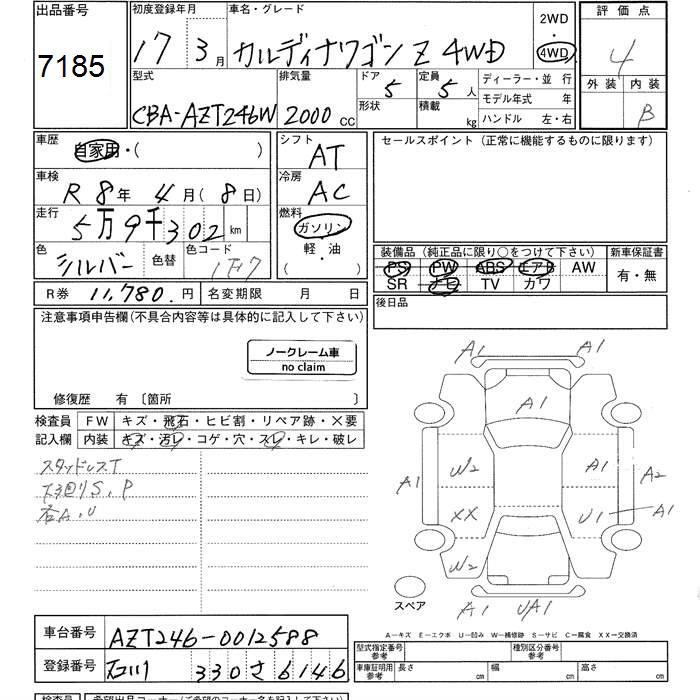 出品番号
7185
初度登録年月
17年 3月
車名・グレード
カルディナワゴン Z 4WD
2WD
・
4WD
評価点
4
外装
内装
B
型式
CBA-AZT246W
排気量
2000 CC
ドア
5
形状
定員
5人
積載
kg
ディーラー・並行
モデル年式 年
ハンドル 左・右
車歴
自家用・( )
車検
R 8年 4月(8日)
走行
5万9千302 km
色
シルバー
色替
色コード
1F7
R券 11,780.円
名変期限 月 日
シフト
AT
冷房
AC
燃料
ガソリン
軽・油
( ・ )
セールスポイント(正常に機能するものに限ります)
装備品(純正品に限り○をつけて下さい)
PS PW ABS エアB AW
SR ナビ TV カワ
新車保証書
有・無
後日品
注意事項申告欄(不具合内容等は具体的に記入して下さい)
ノークレーム車
no claim
修復歴 有 〔箇所 〕
検査員
記入欄
FW キズ・飛石・ヒビ割・リペア跡・×要
内装 キズ・汚レ・コゲ・穴・スレ・キレ・破レ
スタッドレスT
下回りS.P
各A.U
A1 A1
A1
W2 A1
A1 A2
XX U1 A1
W2
A1 UA1
スペア
A-キズ E-エクボ U-凹み W-補修跡 S-サビ C-腐食 XX-交換済
車台番号
AZT246-0012588
登録番号
石川 330 さ 6146
型式指定番号
参考
種別区分番号
参考
車庫証明用
参考
長さ
幅
高さ